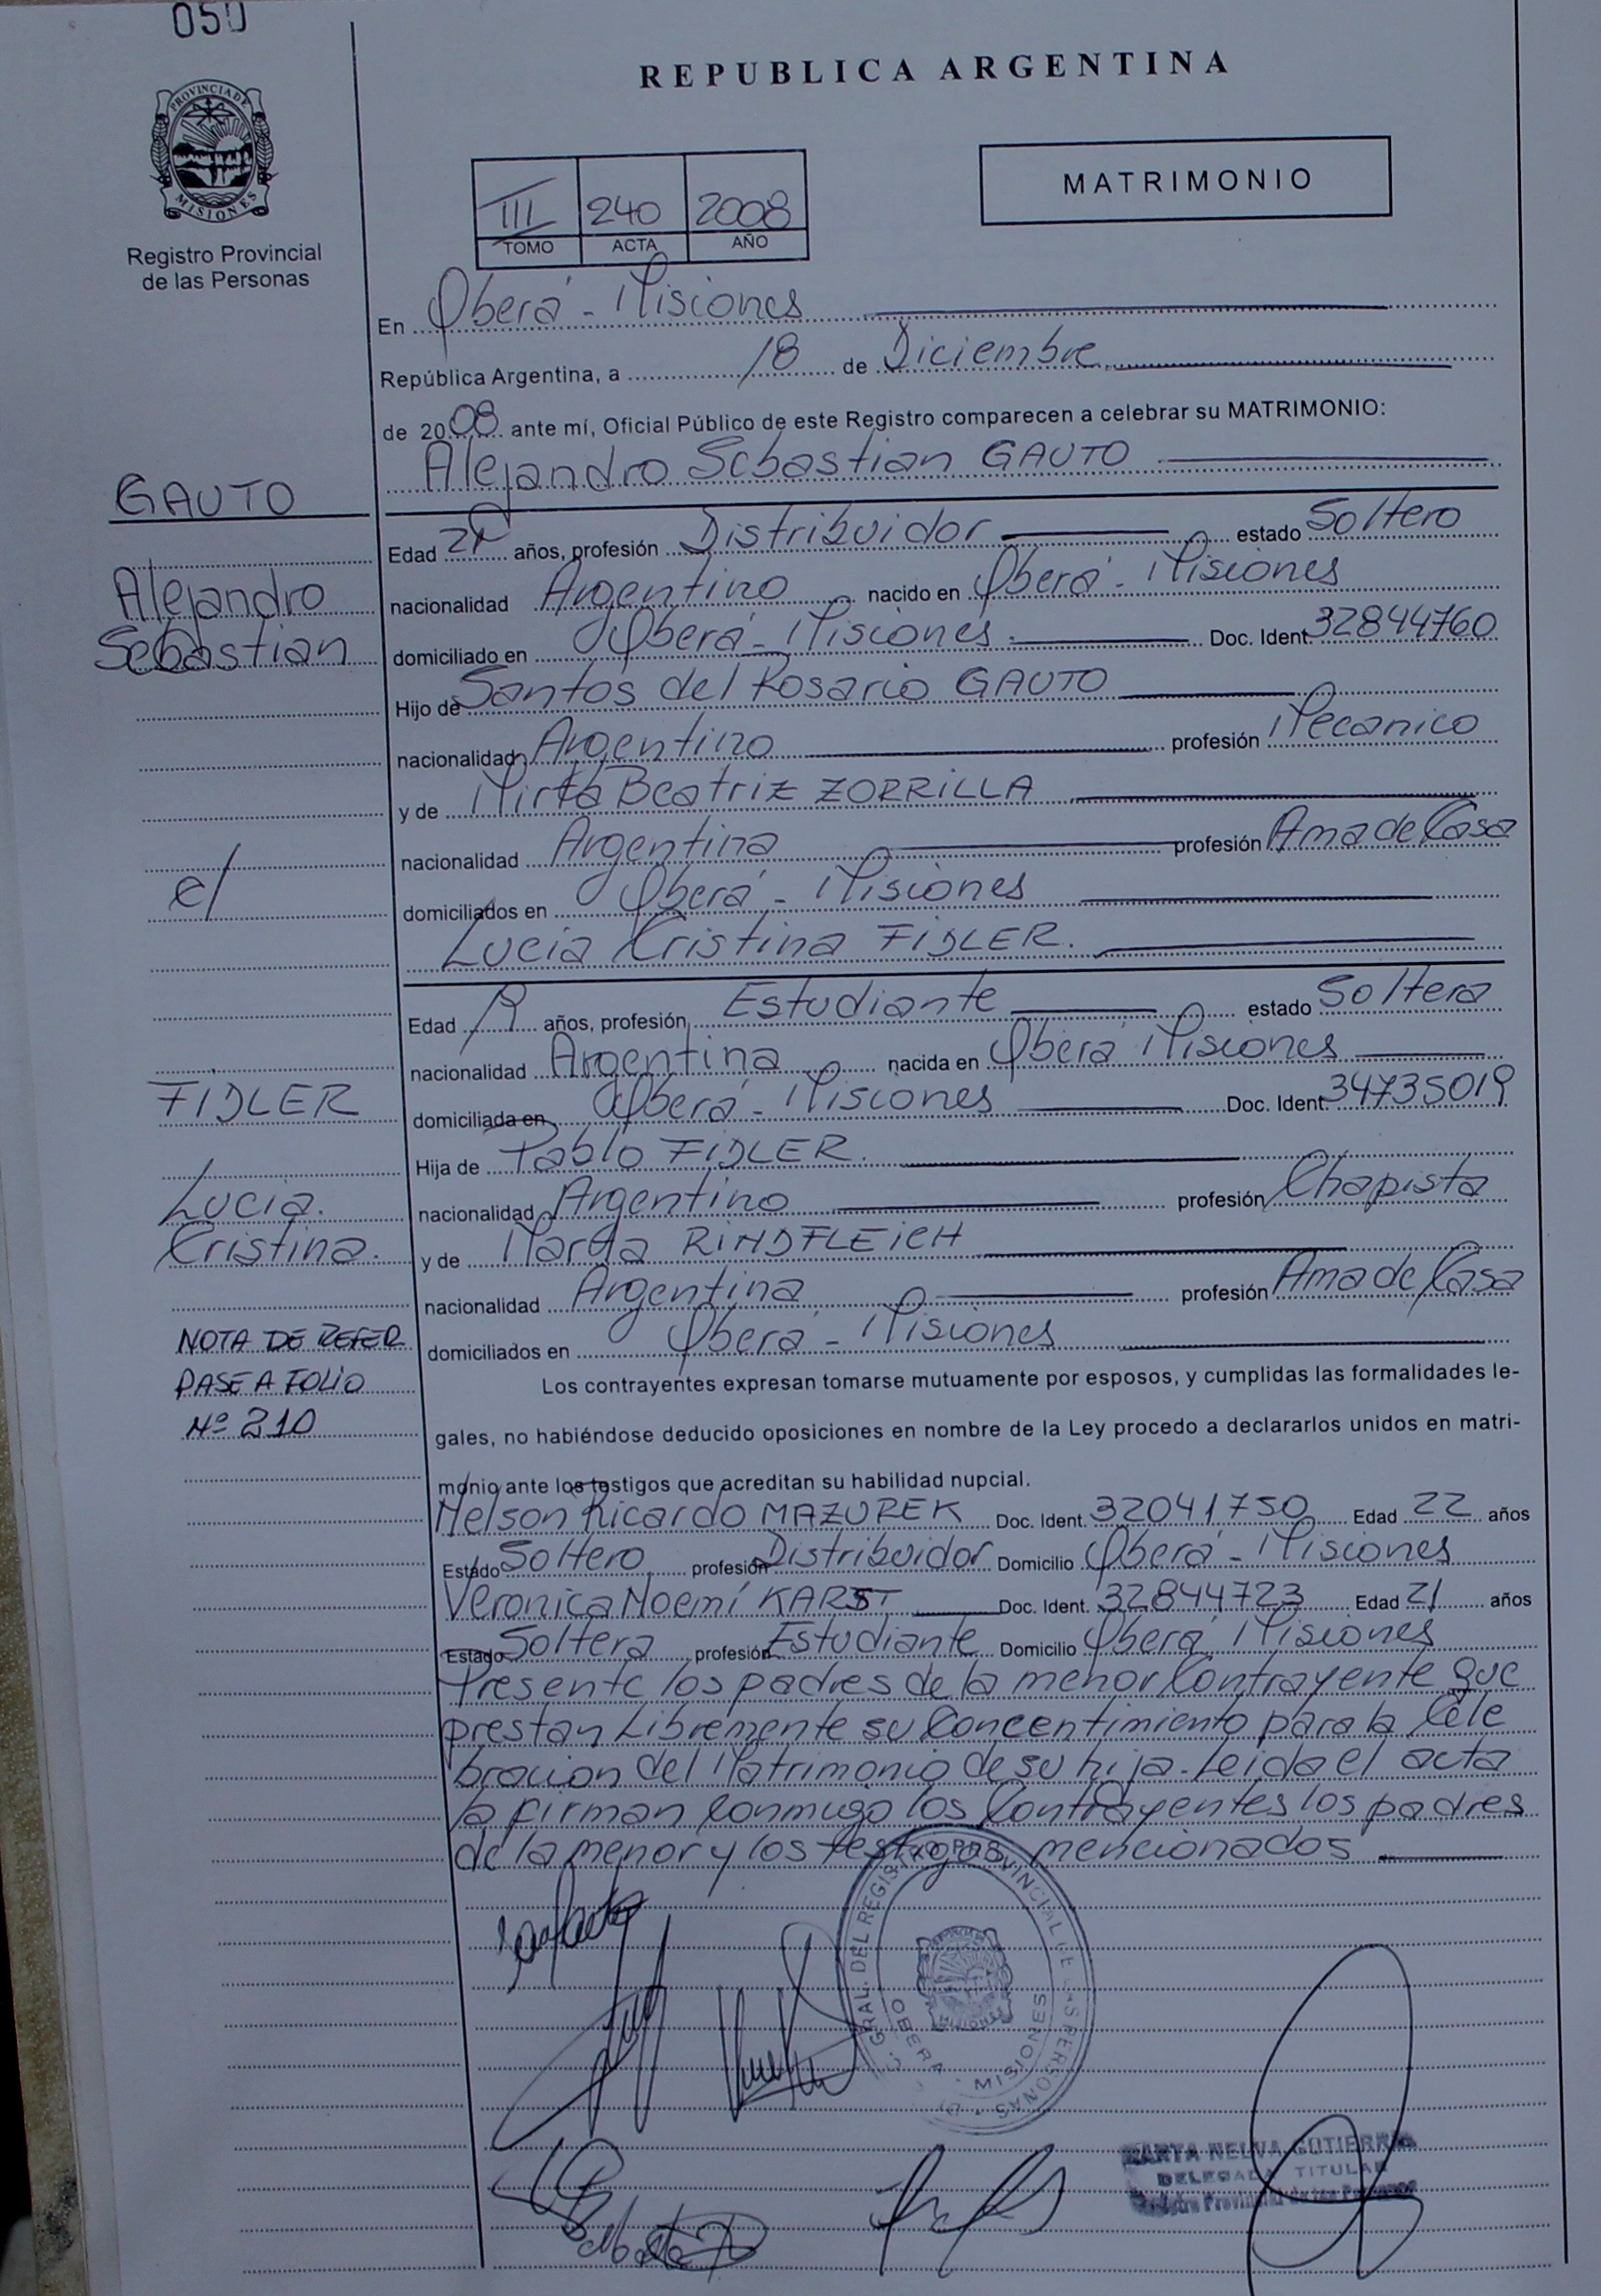 050
REPUBLICA ARGENTINA
PROVINCIA DE
MISIONES
Registro Provincial
de las Personas
III 240 2008
TOMO ACTA AÑO
MATRIMONIO
En Oberá - Misiones
República Argentina, a 18 de Diciembre
de 2008 ante mí, Oficial Público de este Registro comparecen a celebrar su MATRIMONIO:
Alejandro Sebastian GAUTO
GAUTO
Edad años, profesión Distribuidor estado Soltero
Alejandro
nacionalidad Argentino nacido en Oberá - Misiones
Sebastian
domiciliado en Oberá - Misiones Doc. Ident. 32844760
Hijo de Santos del Rosario GAUTO
nacionalidad Argentino profesión Mecanico
y de Mirta Beatriz ZORRILLA
nacionalidad Argentina profesión Ama de Casa
c/
domiciliados en Oberá - Misiones
Lucia Cristina FIDLER.
Edad años, profesión Estudiante estado Soltera
nacionalidad Argentina nacida en Oberá Misiones
FIDLER
domiciliada en Oberá - Misiones Doc. Ident. 34735019
Hija de Pablo FIDLER.
Lucia.
nacionalidad Argentino profesión Chapista
Cristina.
y de RINDFLEiCH
nacionalidad Argentina profesión Ama de Casa
NOTA DE REFER
domiciliados en Oberá - Misiones
PASE A FOLIO
Los contrayentes expresan tomarse mutuamente por esposos, y cumplidas las formalidades le-
Nº 210
gales, no habiéndose deducido oposiciones en nombre de la Ley procedo a declararlos unidos en matri-
monio ante los testigos que acreditan su habilidad nupcial.
Nelson Ricardo MAZUREK Doc. Ident. 32041750 Edad 22 años
Estado Soltero profesión Distribuidor Domicilio Oberá - Misiones
Veronica Noemí KARST Doc. Ident. 32844723 Edad 21 años
Estado Soltera profesión Estudiante Domicilio Oberá Misiones
Presente los padres de la menor Contrayente que
prestan Libremente su Concentimiento para la Cele
bracion del Matrimonio de su hija. Leida el acta
la firman conmigo los Contrayentes los padres
de la menor y los testigos mencionados
GRAL. DEL REGISTRO PROVINCIAL DE LAS PERSONAS
OBERA - MISIONES
MARTA NELVA GUTIERREZ
DELEGADA TITULAR
Registro Provincial de las Personas